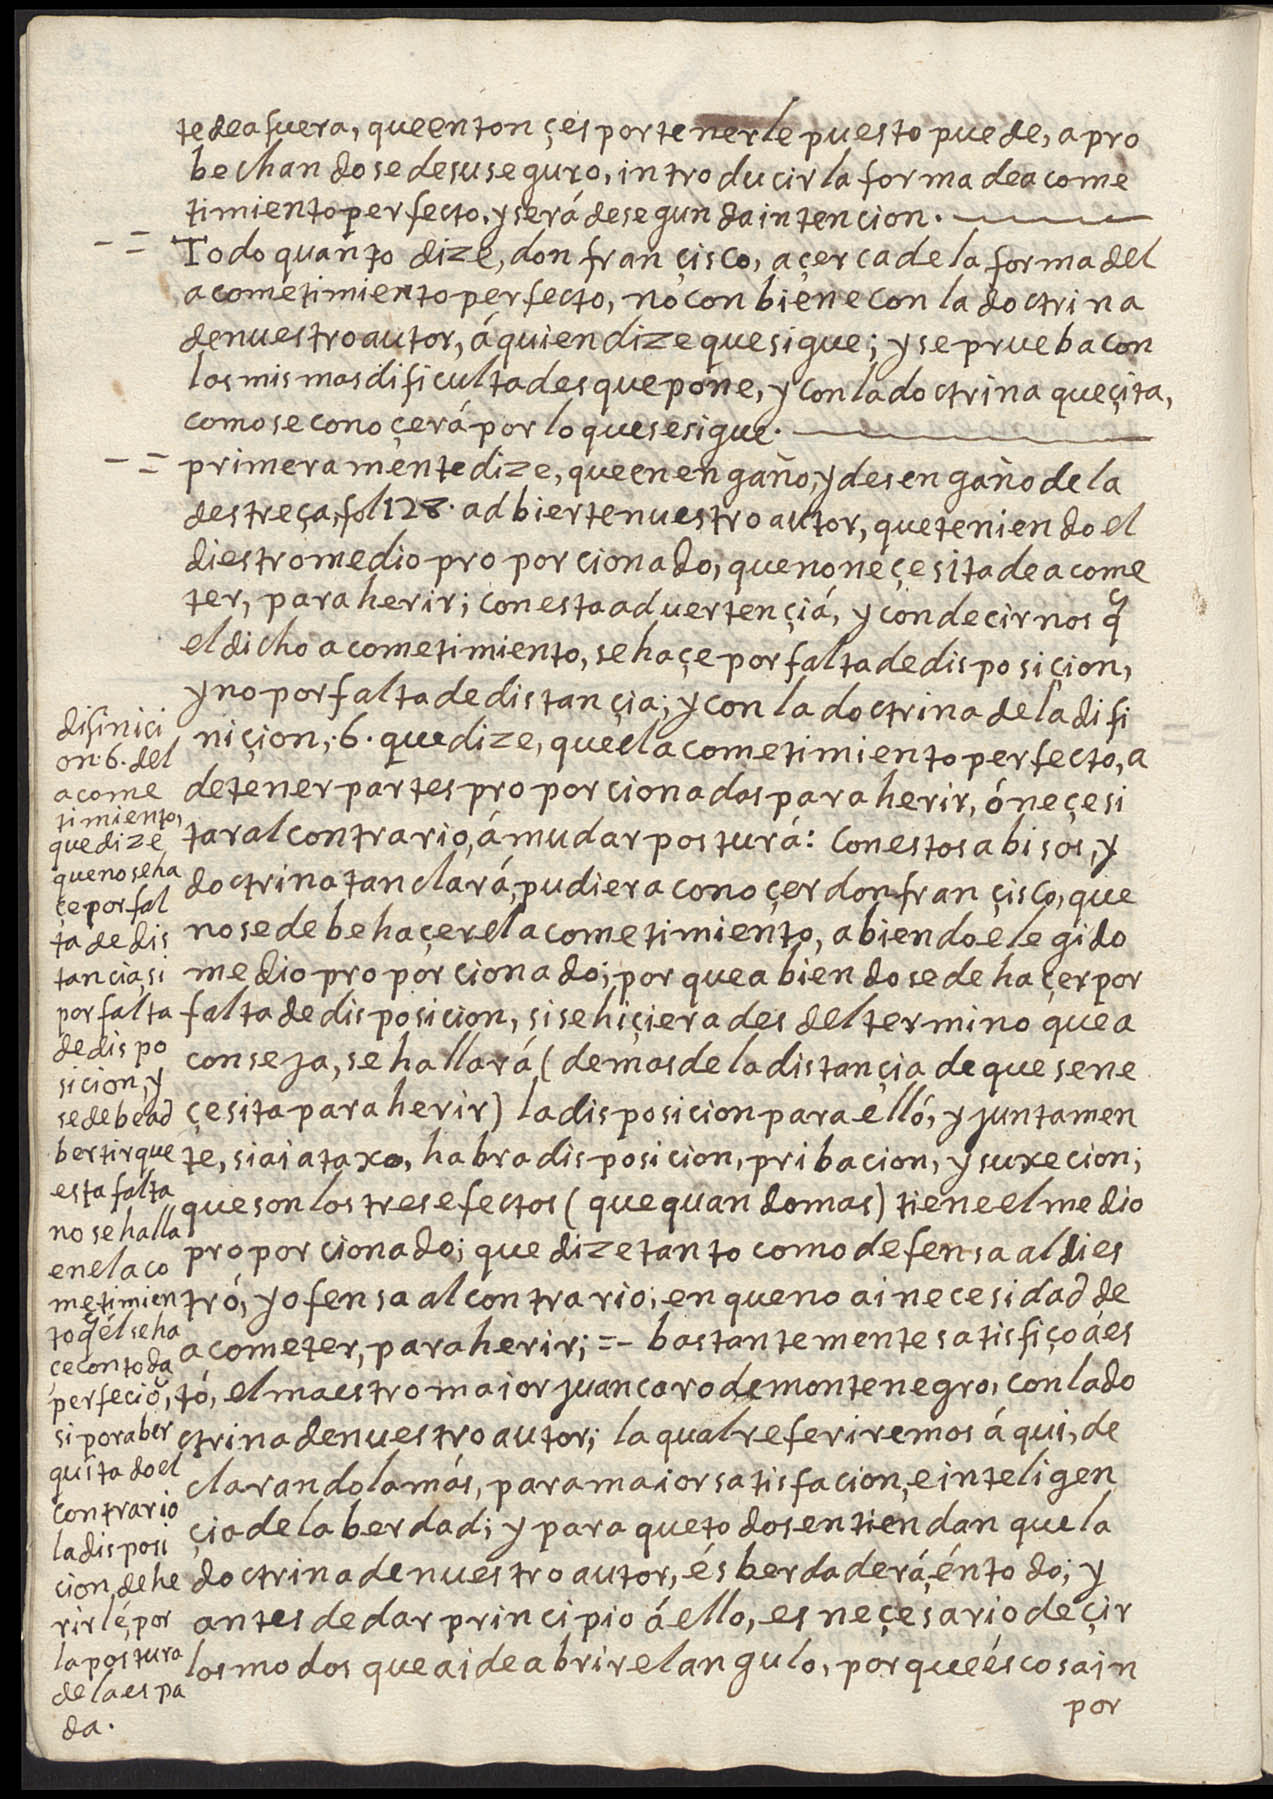 te de afuera, que entonçes por tenerle puesto puede, apro
bechandose de su seguro, introducir la forma de acome
timiento perfecto, y será de segunda intencion.
-= Todo quanto dize, don françisco, açerca de la forma del
acometimiento perfecto, no conbiene con la doctrina
de nuestro autor, á quien dize que sigue; y se prueba con
las mismas dificultades que pone, y con la doctrina que çita,
como se conoçerá por lo que se sigue.
-= primeramente dize, que en engaño, y desengaño de la
destreça, fol 128. adbierte nuestro autor, que teniendo el
diestro medio proporcionado, que no neçesita de acome
ter, para herir; con esta aduertençiá, y con decirnos q̃
el dicho acometimiento, se haçe por falta de disposiçion,
y no por falta de distançia; y con la doctrina de la difi
niçion, .6. que dize, que el acometimiento perfecto, a
de tener partes proporcionadas para herir, ó neçesi
tar al contrario, á mudar posturá: Con estos abisos, y
doctrina tan clará, pudiera conoçer don françisco, que
no se debe haçer el acometimiento, abiendo elegido
medio proporcionado; porque abiendose de haçer por
falta de disposicion, si se hiçiera desdel termino que a
conseja, se hallará (demas de la distançia de que se ne
çesita para herir) la disposicion para elló, y juntamen
te, si ai ataxo, habra disposicion, pribacion, y suxecion;
que son los tres efectos (que quando mas) tiene el medio
proporcionado; que dize tanto como defensa al dies
tró, y ofensa al contrario; en que no ai necesidad de
acometer, para herir; =- bastantemente satisfiço á es
tó, el maestro maior juan caro de montenegro, con la do
ctrina de nuestro autor; la qual referiremos áqui, de
clarandola más, para maior satisfacion, e inteligen
çia de la berdad; y para que todos entiendan que la
doctrina de nuestro autor, és berdaderá, én todo; y
antes de dar principio á ello, es neçesario deçir
los modos que ai de abrir el angulo, porque és cosa in
por
difinici
on .6. del
acome
timiento,
que dize
que no se ha
çe por fal
ta de dis
tancia, si
por falta
de dispo
sicion, y
se debe ad
bertir que
esta falta
no se halla
en el aco
metimien
to q̃ él se ha
ce con toda
perfeciõ,
si por aber
quitado el
contrario
la disposi
cion, de he
rirlé, por
la postura
de la espa
da.